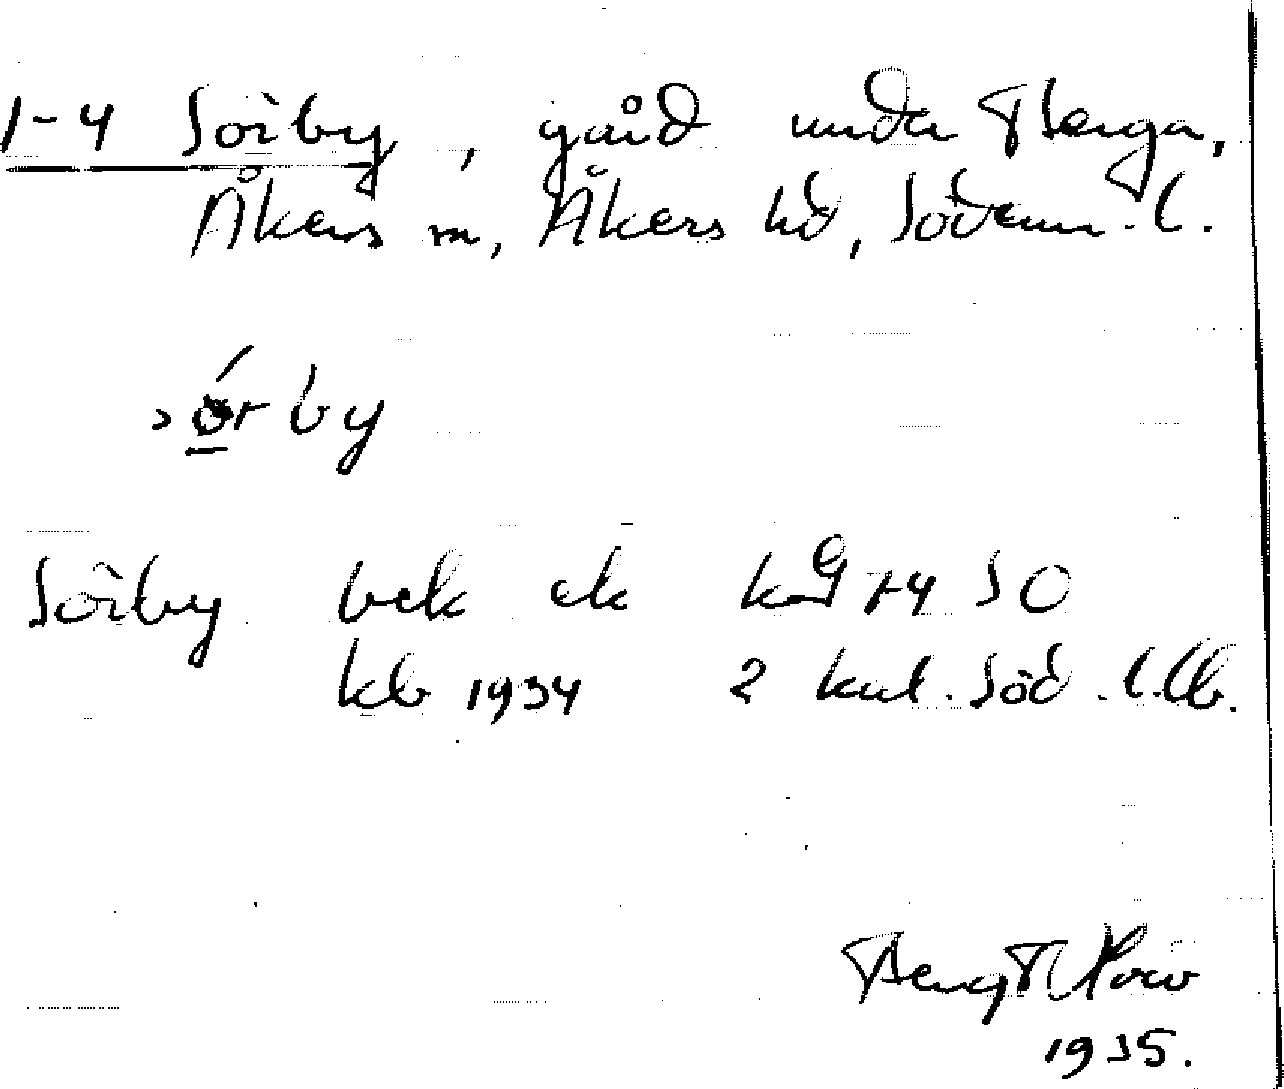 1-4 Sörby, gård under Berga,
Åkers sn, Åkers hd, Söderm. l.
sörby
Sörby bek ek 1-4 JO
kb 1934 2 kul. Söd. l.
Bengt
1935.